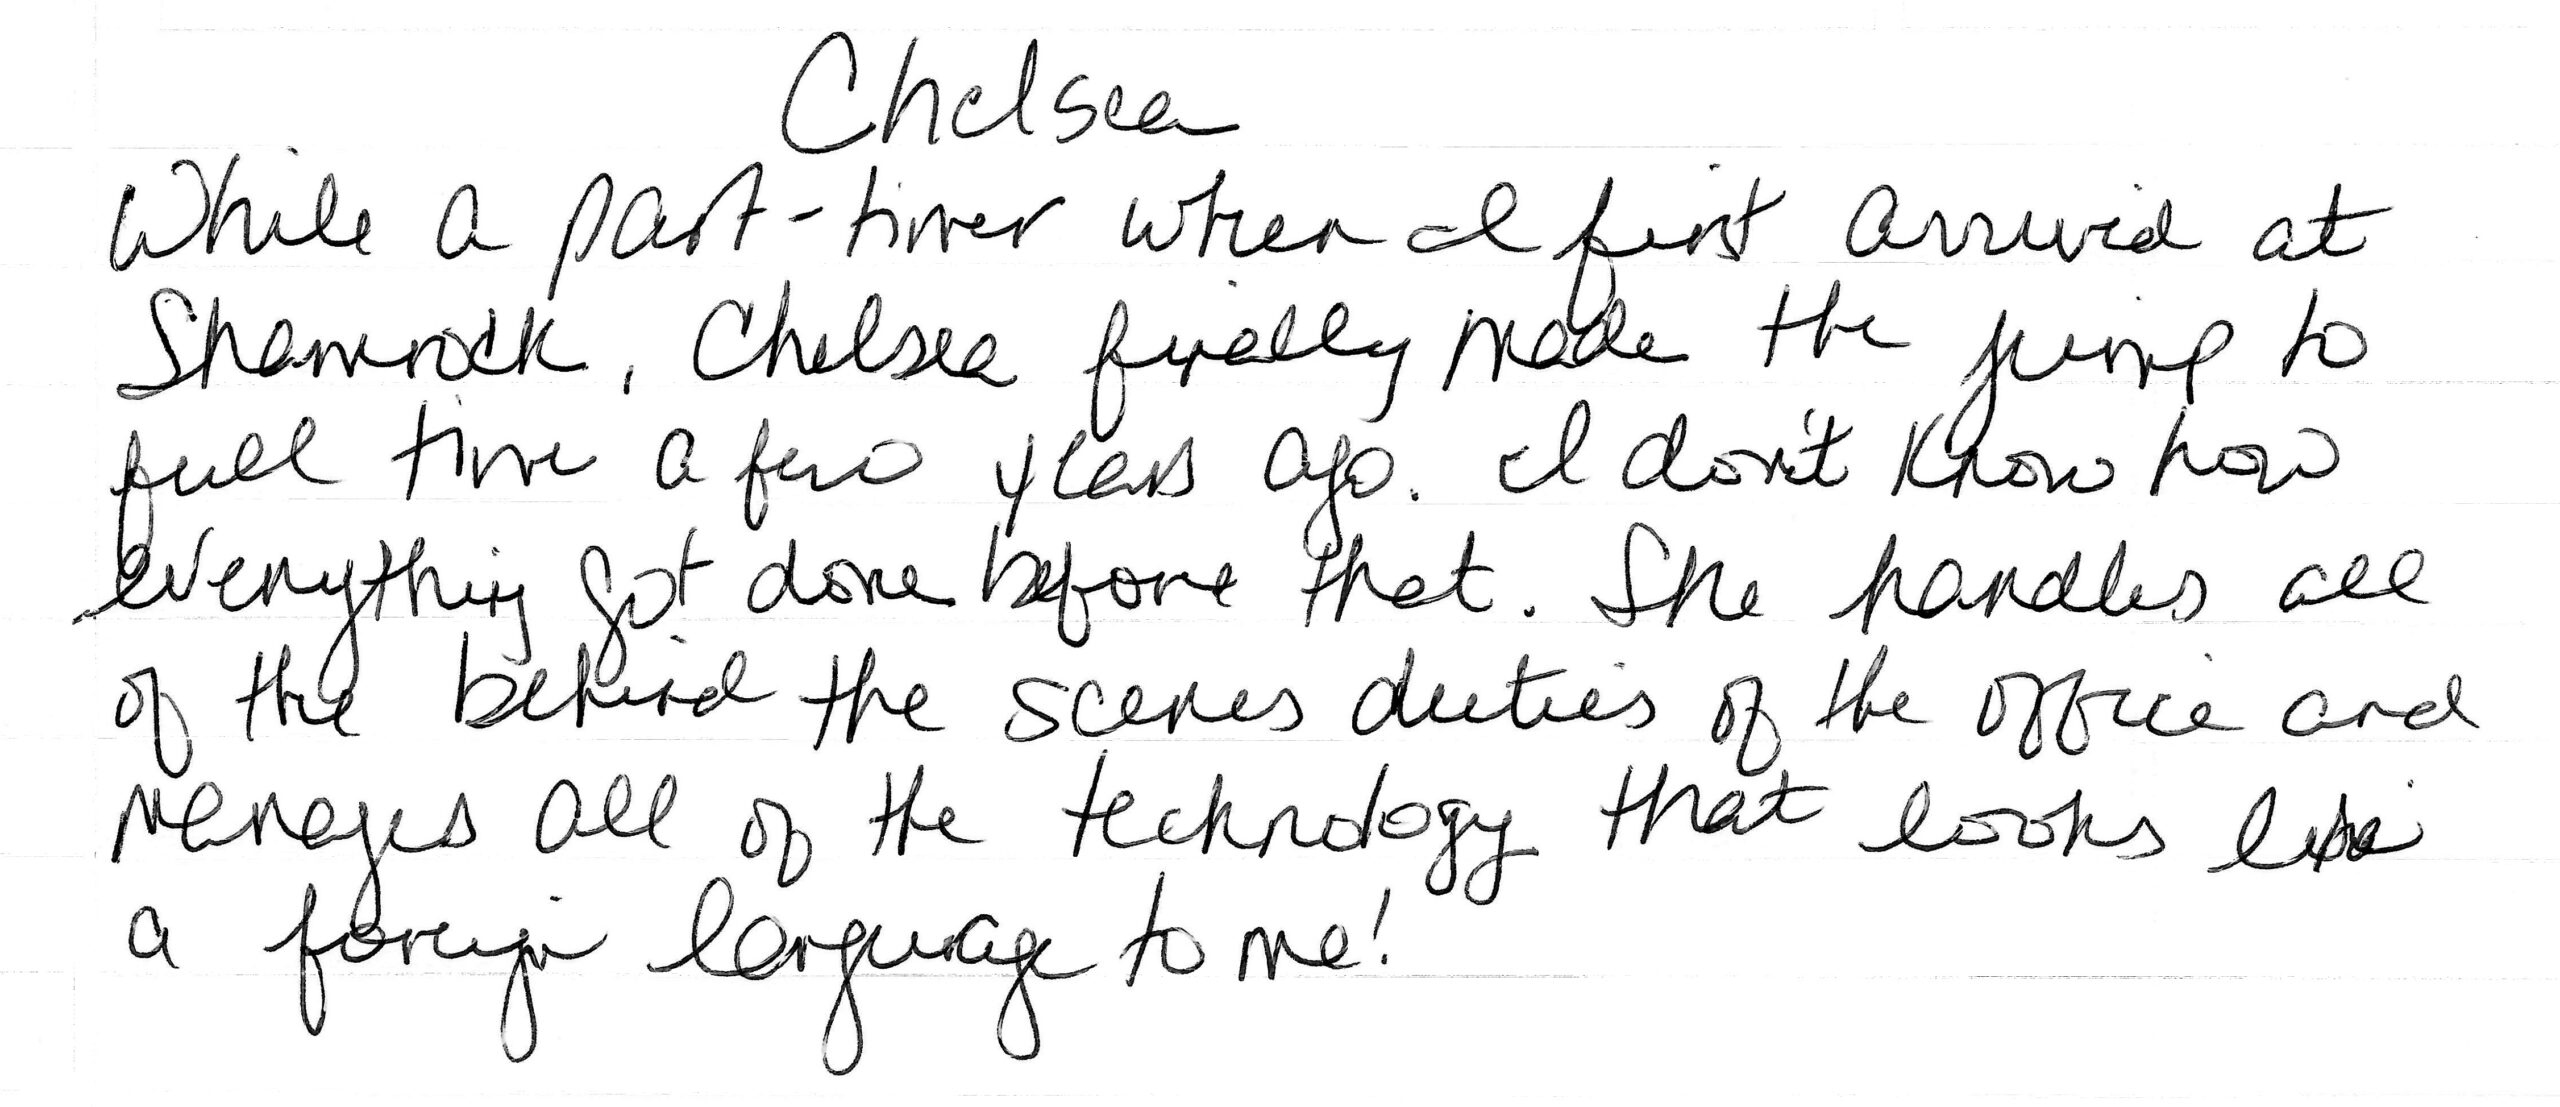 Chelsea
While a part-timer when I first arrived at
Shamrock, Chelsea finally made the jump to
full time a few years ago. I don't know how
everything got done before that. She handles all
of the behind the scenes duties of the office and
manages all of the technology that looks like
a foreign language to me!